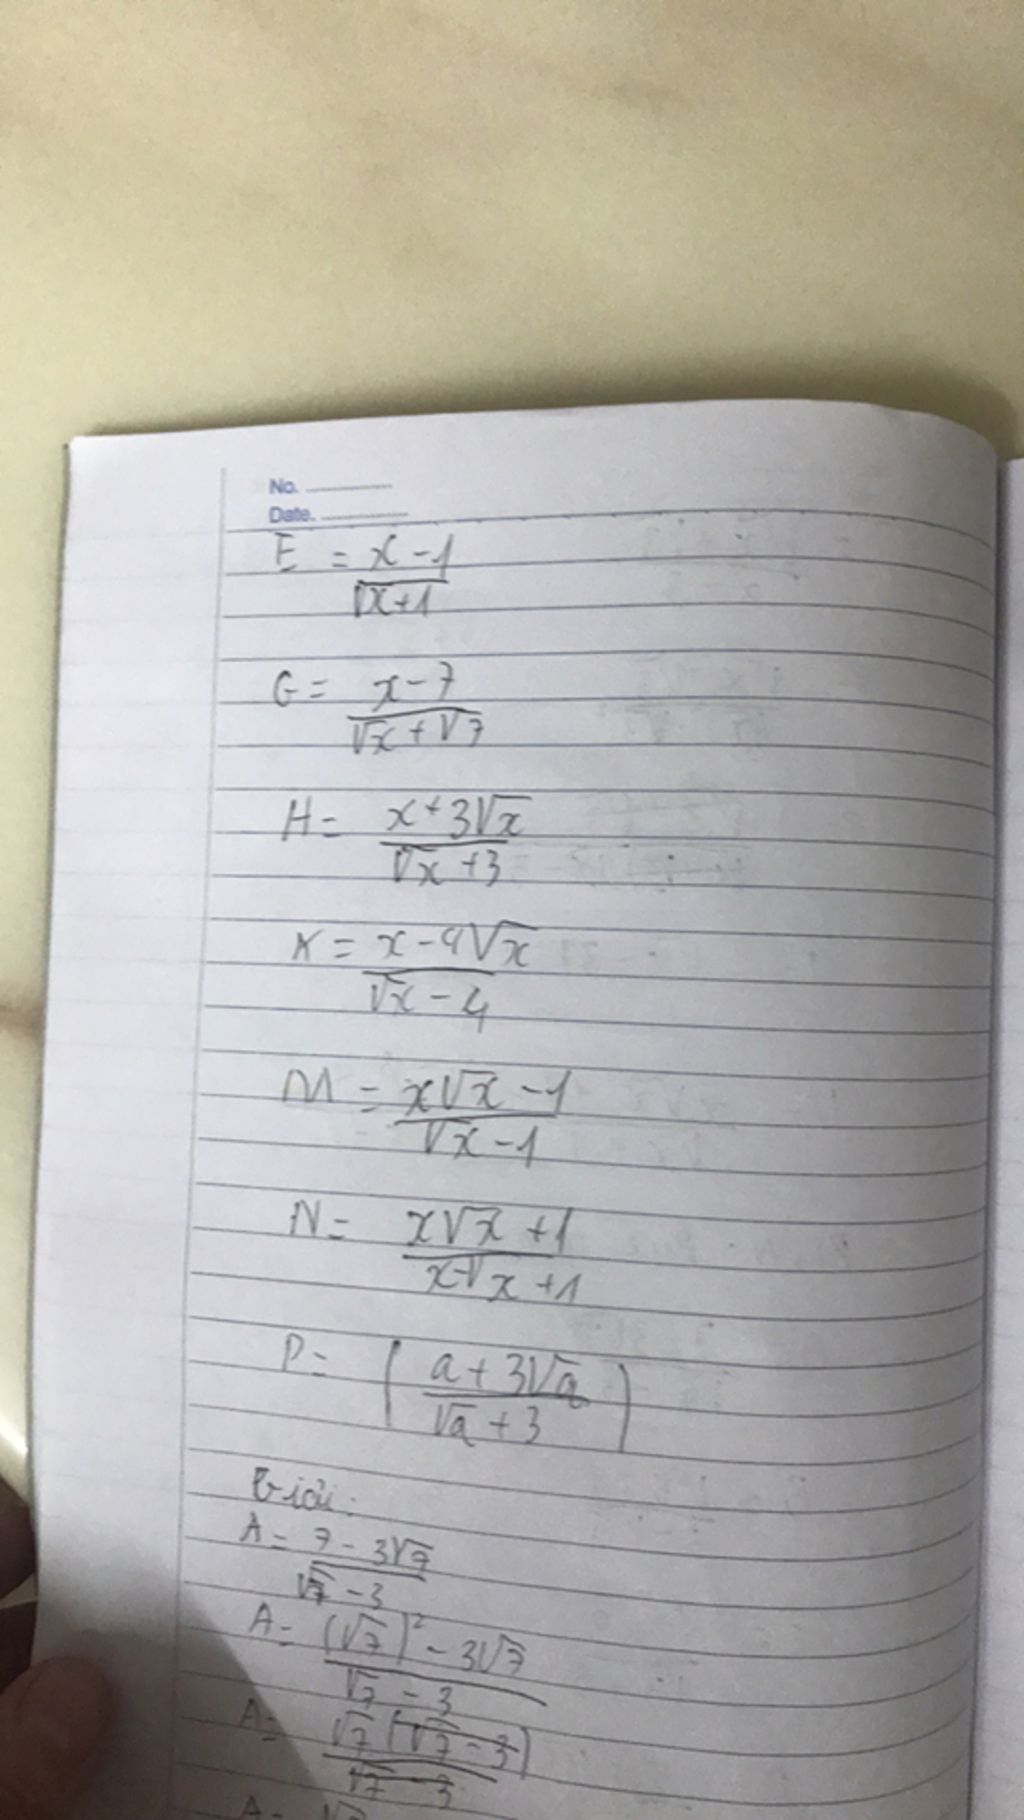 No. ............
Date. ............
E = \frac{x-1}{\sqrt{x}+1}
G = \frac{x-7}{\sqrt{x}+\sqrt{7}}
H = \frac{x+3\sqrt{x}}{\sqrt{x}+3}
K = \frac{x-4\sqrt{x}}{\sqrt{x}-4}
M = \frac{x\sqrt{x}-1}{\sqrt{x}-1}
N = \frac{x\sqrt{x}+1}{x-\sqrt{x}+1}
P = \left(\frac{a+3\sqrt{a}}{\sqrt{a}+3}\right)
Giải:
A = \frac{7-3\sqrt{7}}{\sqrt{7}-3}
A = \frac{(\sqrt{7})^2-3\sqrt{7}}{\sqrt{7}-3}
A = \frac{\sqrt{7}(\sqrt{7}-3)}{\sqrt{7}-3}
A =